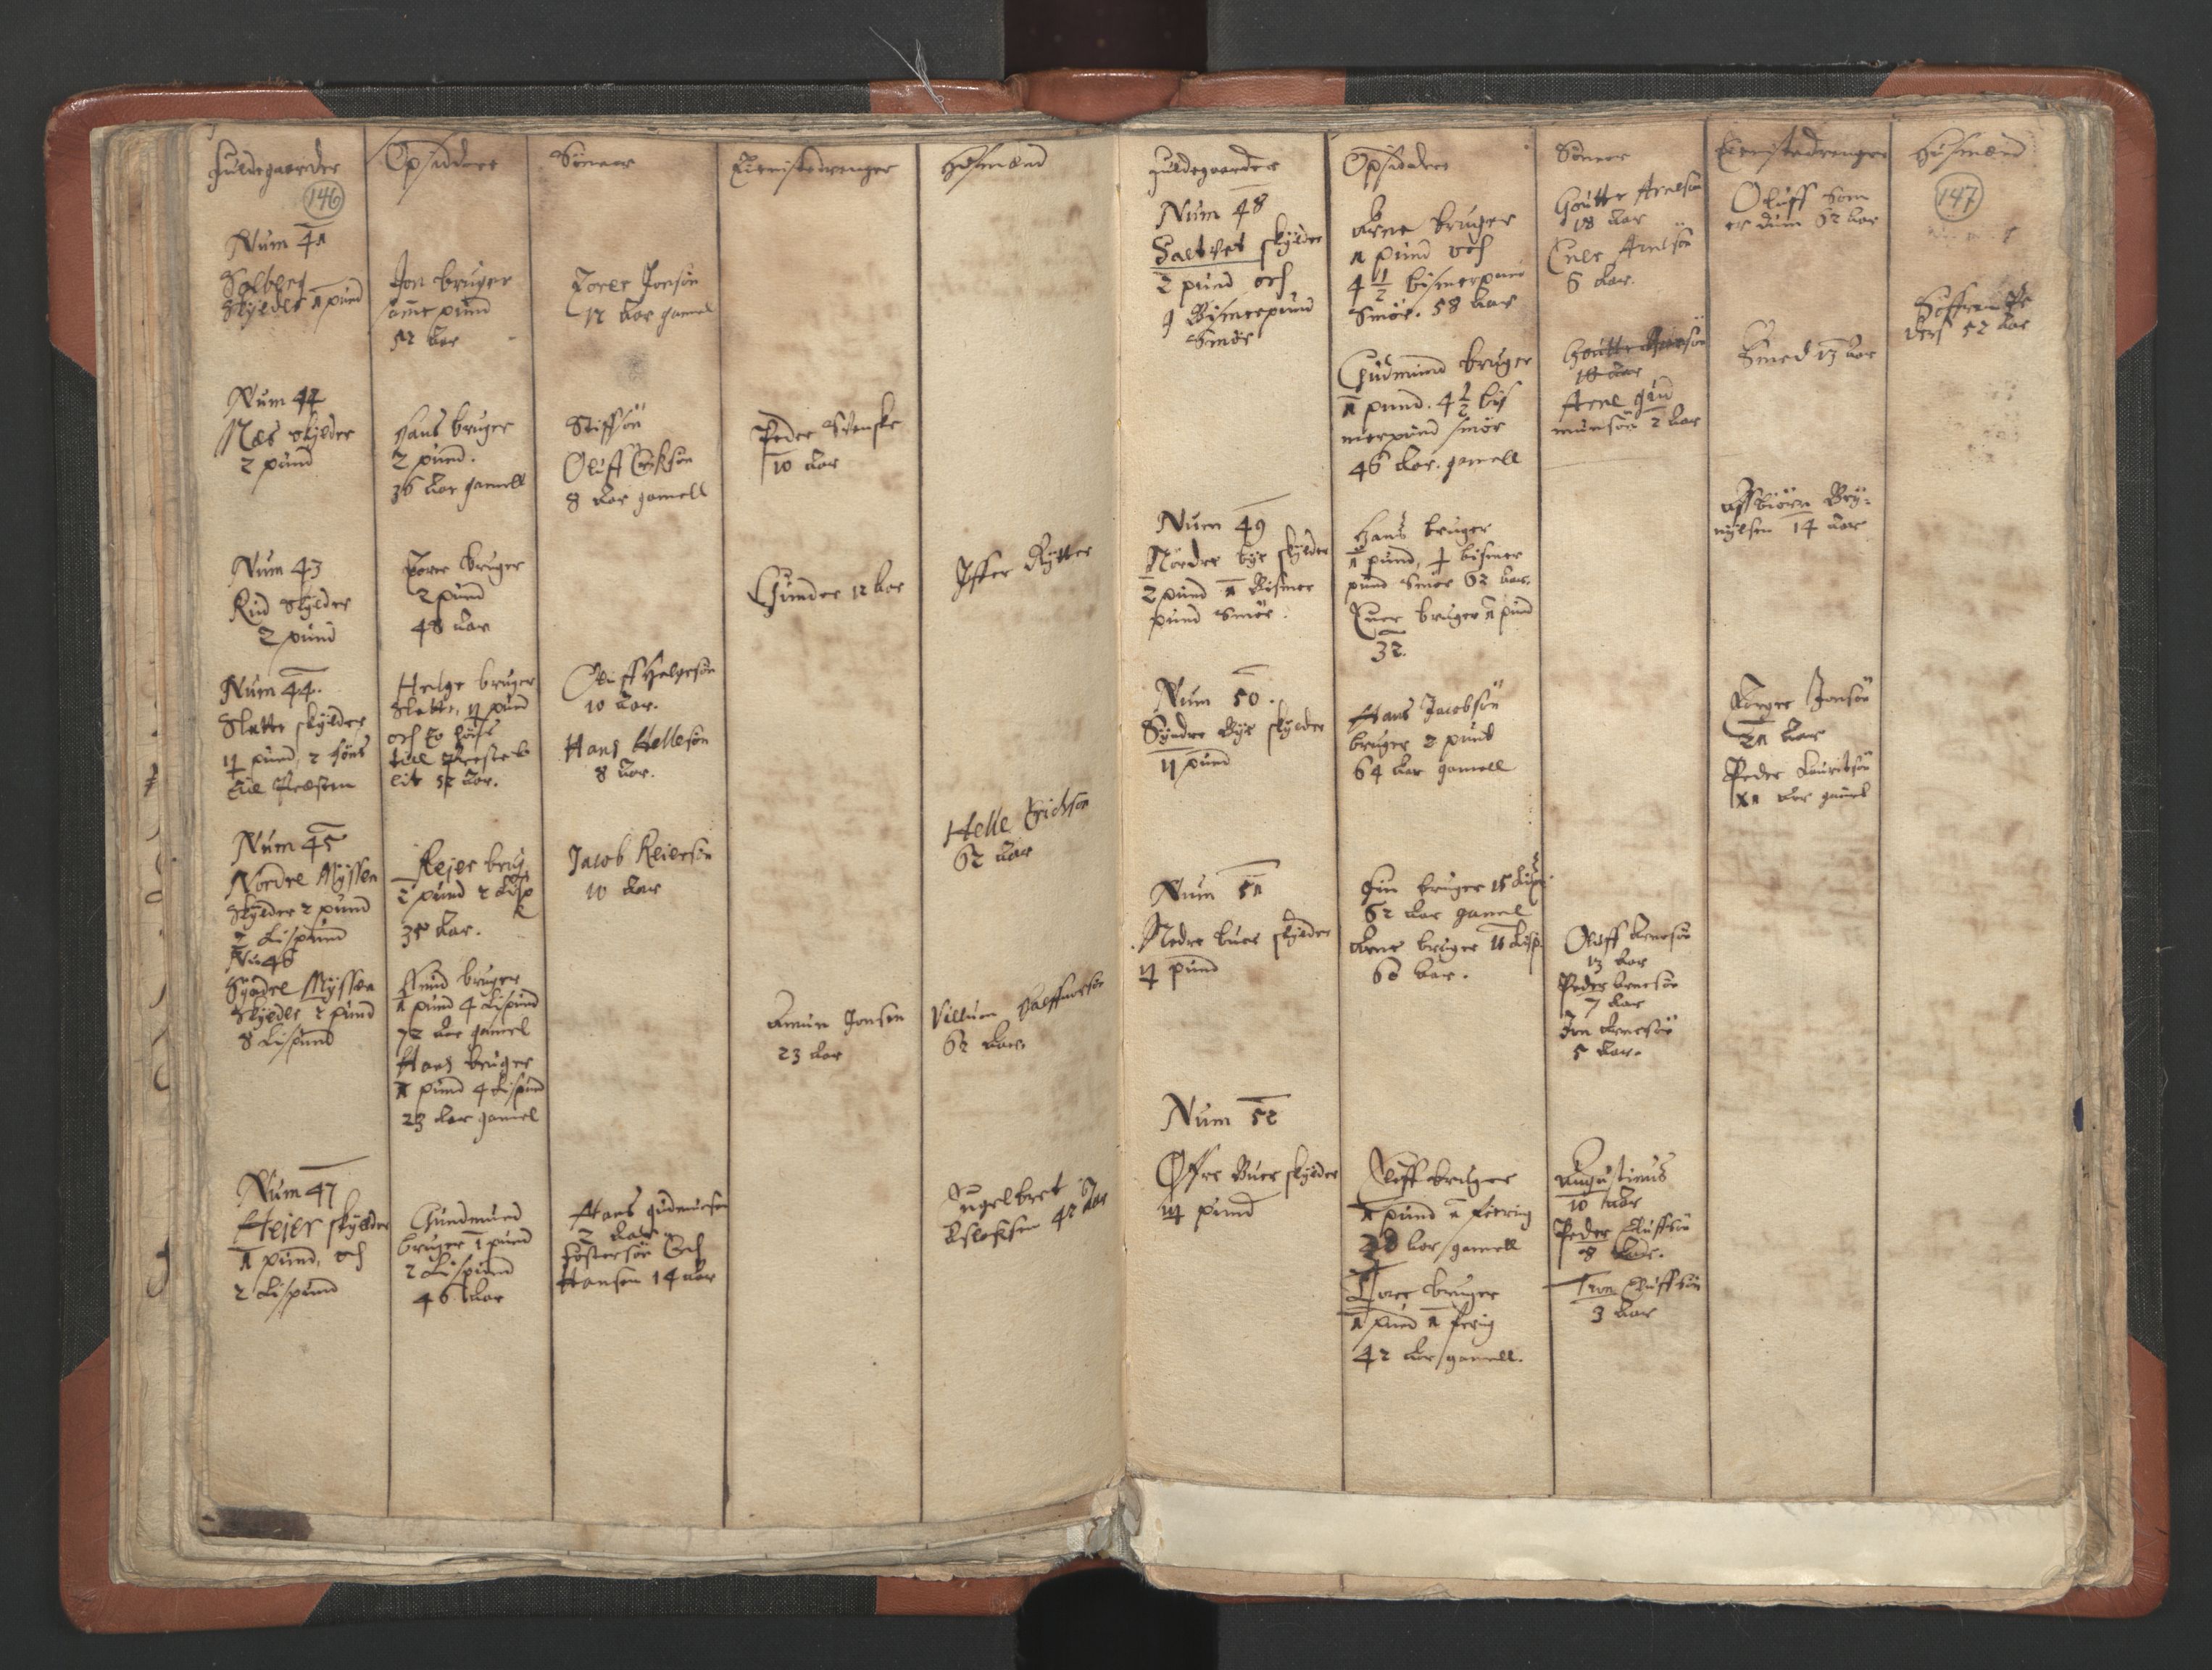 Fuldegaarder
Opsiddere
Sönner
Tienistedrenger
Hüsmænd
146
Num 41
Solberg
Skylder 1 pund
Jon bruger
samme pund
52 Aar
Torer Jonsön
12 Aar gamel
Num 42
Næs skylder
2 pund
Hans bruger
2 pund.
36 Aar gamell
Stifsön
Oluff Erikson
8 Aar gamell
Peder Svenske
10 Aar
Num 43
Rud Skylder
2 pund
Torer bruger
2 pund
48 Aar
Gunder 12 Aar
Iffer Rytter
Num 44.
Slette skylder
pund, 2 höns
til Præsten
Helge bruger
Slette, pund
och
till
52 Aar.
Oluff Helgesön
10 Aar.
Hans Hellesön
8 Aar.
Num 45
Nordre Myssen
Skylder 2 pund
2 Lispund
Rejer brug
2 pund 2 Lisp
35 Aar.
Jacob Reiersön
10 Aar
Helle Erichson
62 Aar
Nu 46
Syndre Myssen
Skylder 2 pund
8 Lispund
bruger
1 pund 4 Lispund
72 Aar gamel
Hans bruger
1 pund 4 Lispund
23 Aar gamel
Amun Jonsen
23 Aar
Villum
62 Aar
Num 47
Hejer skylder
1 pund, och
2 Lispund
Gundmund
bruger 1 pund
2 Lispund
46 Aar
Hans gudmunsen
2 Aar
Fostersön
Hansen 14 Aar
Engelbret
Aslaksen 42 Aar
Fuldegaarder
Opsiddere
Sönner
Tienistedrenger
Hüsmænd
147
Num 48
Saltvet skylder
2 pund och
9 Bismerpund
Smör
Arne bruger
1 pund och
4 1/2 bismerpund
Smör. 58 Aar
Goutte Arnesön
18 Aar
Arnesön
6 Aar.
Oluff Som
er dum 62 Aar
Soffren
52 Aar
Gudmund bruger
1 pund. 4 1/2 bis
merpund smör
46 Aar. gamell
Goutte
18 Aar
Arne gud
munsön 2 Aar
Smed 13 Aar
Num 49
Nordre bye skylder
2 pund 1 Bismer
pund Smör.
Hans bruger
1 pund, bismer
pund Smör 62 Aar.
bruger 1 pund
32.
Assbiörn Bry-
nylsen 14 Aar
Num 50.
Syndre Bye skylder
pund
Hans Jacobsön
bruger 2 pund
64 Aar gamell
Jonsön
21 Aar
Peder Lauritsön
Aar gamel
Num 51
Nedre buer skylder
pund
Fin bruger 15 Lisp.
62 Aar gamel
Arne bruger 15 Lisp
60 Aar.
Oluff Arnesön
13 Aar
Peder Arnesön
7 Aar
Jon Arnesön
5 Aar.
Num 52
Öfre Buer skylder
pund
Oluff bruger
1 pund 1 fiering
38 Aar gamell
Torer bruger
1 pund 1 fering
42 Aar gamell.
Augustinus
10 Aar
Peder Oluffsön
8 Aar.
Tron Oluffsön
3 Aar